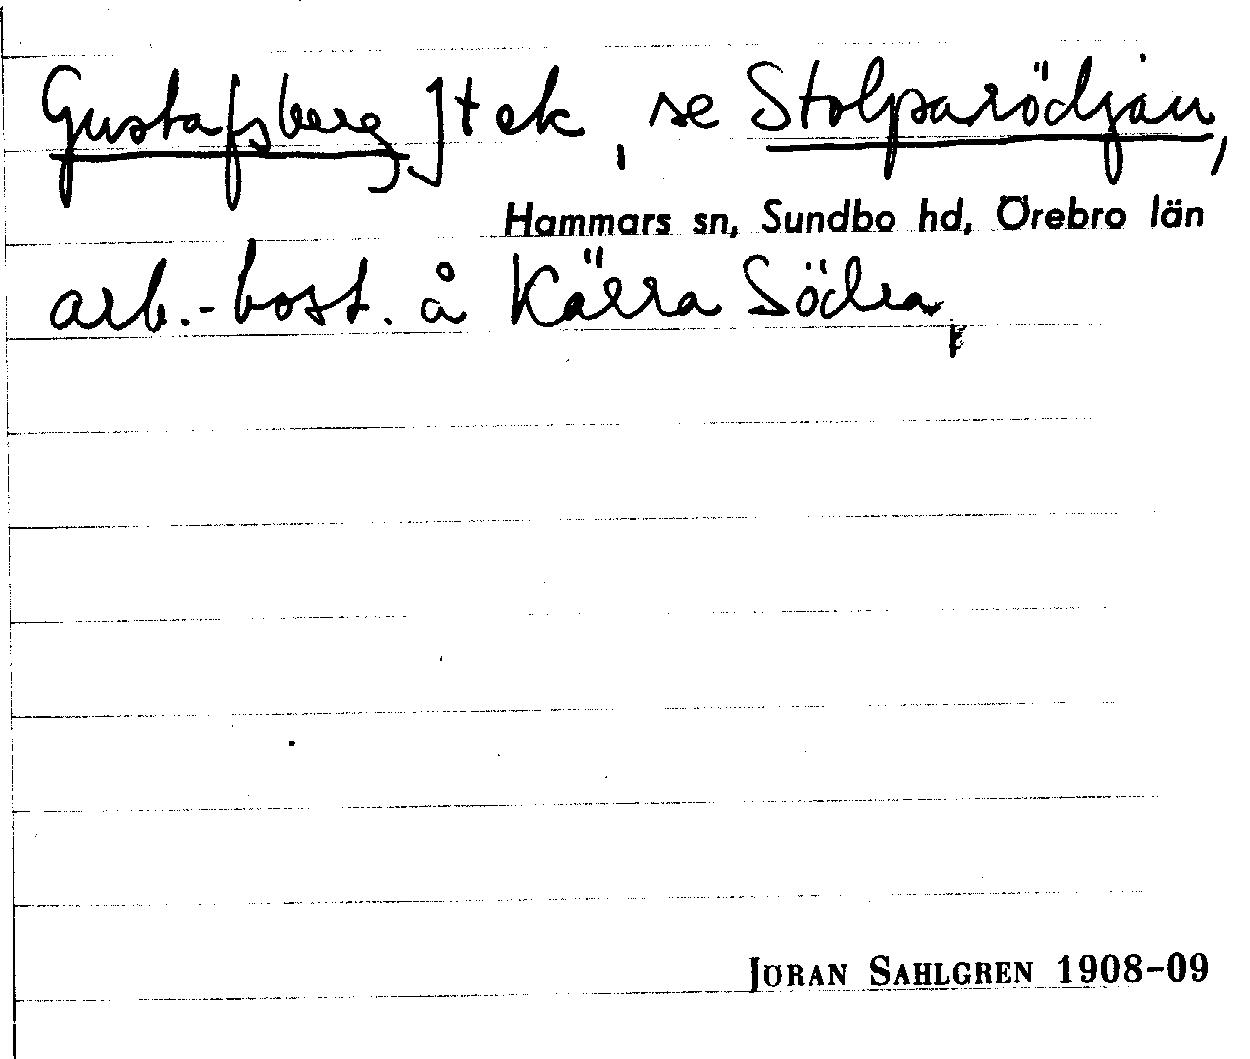 Gustafsberg] t ek, se Stolparödjan,
Hammars sn, Sundbo hd, Örebro län
arb.-bost. å Kärra Södra,
JÖRAN SAHLGREN 1908-09